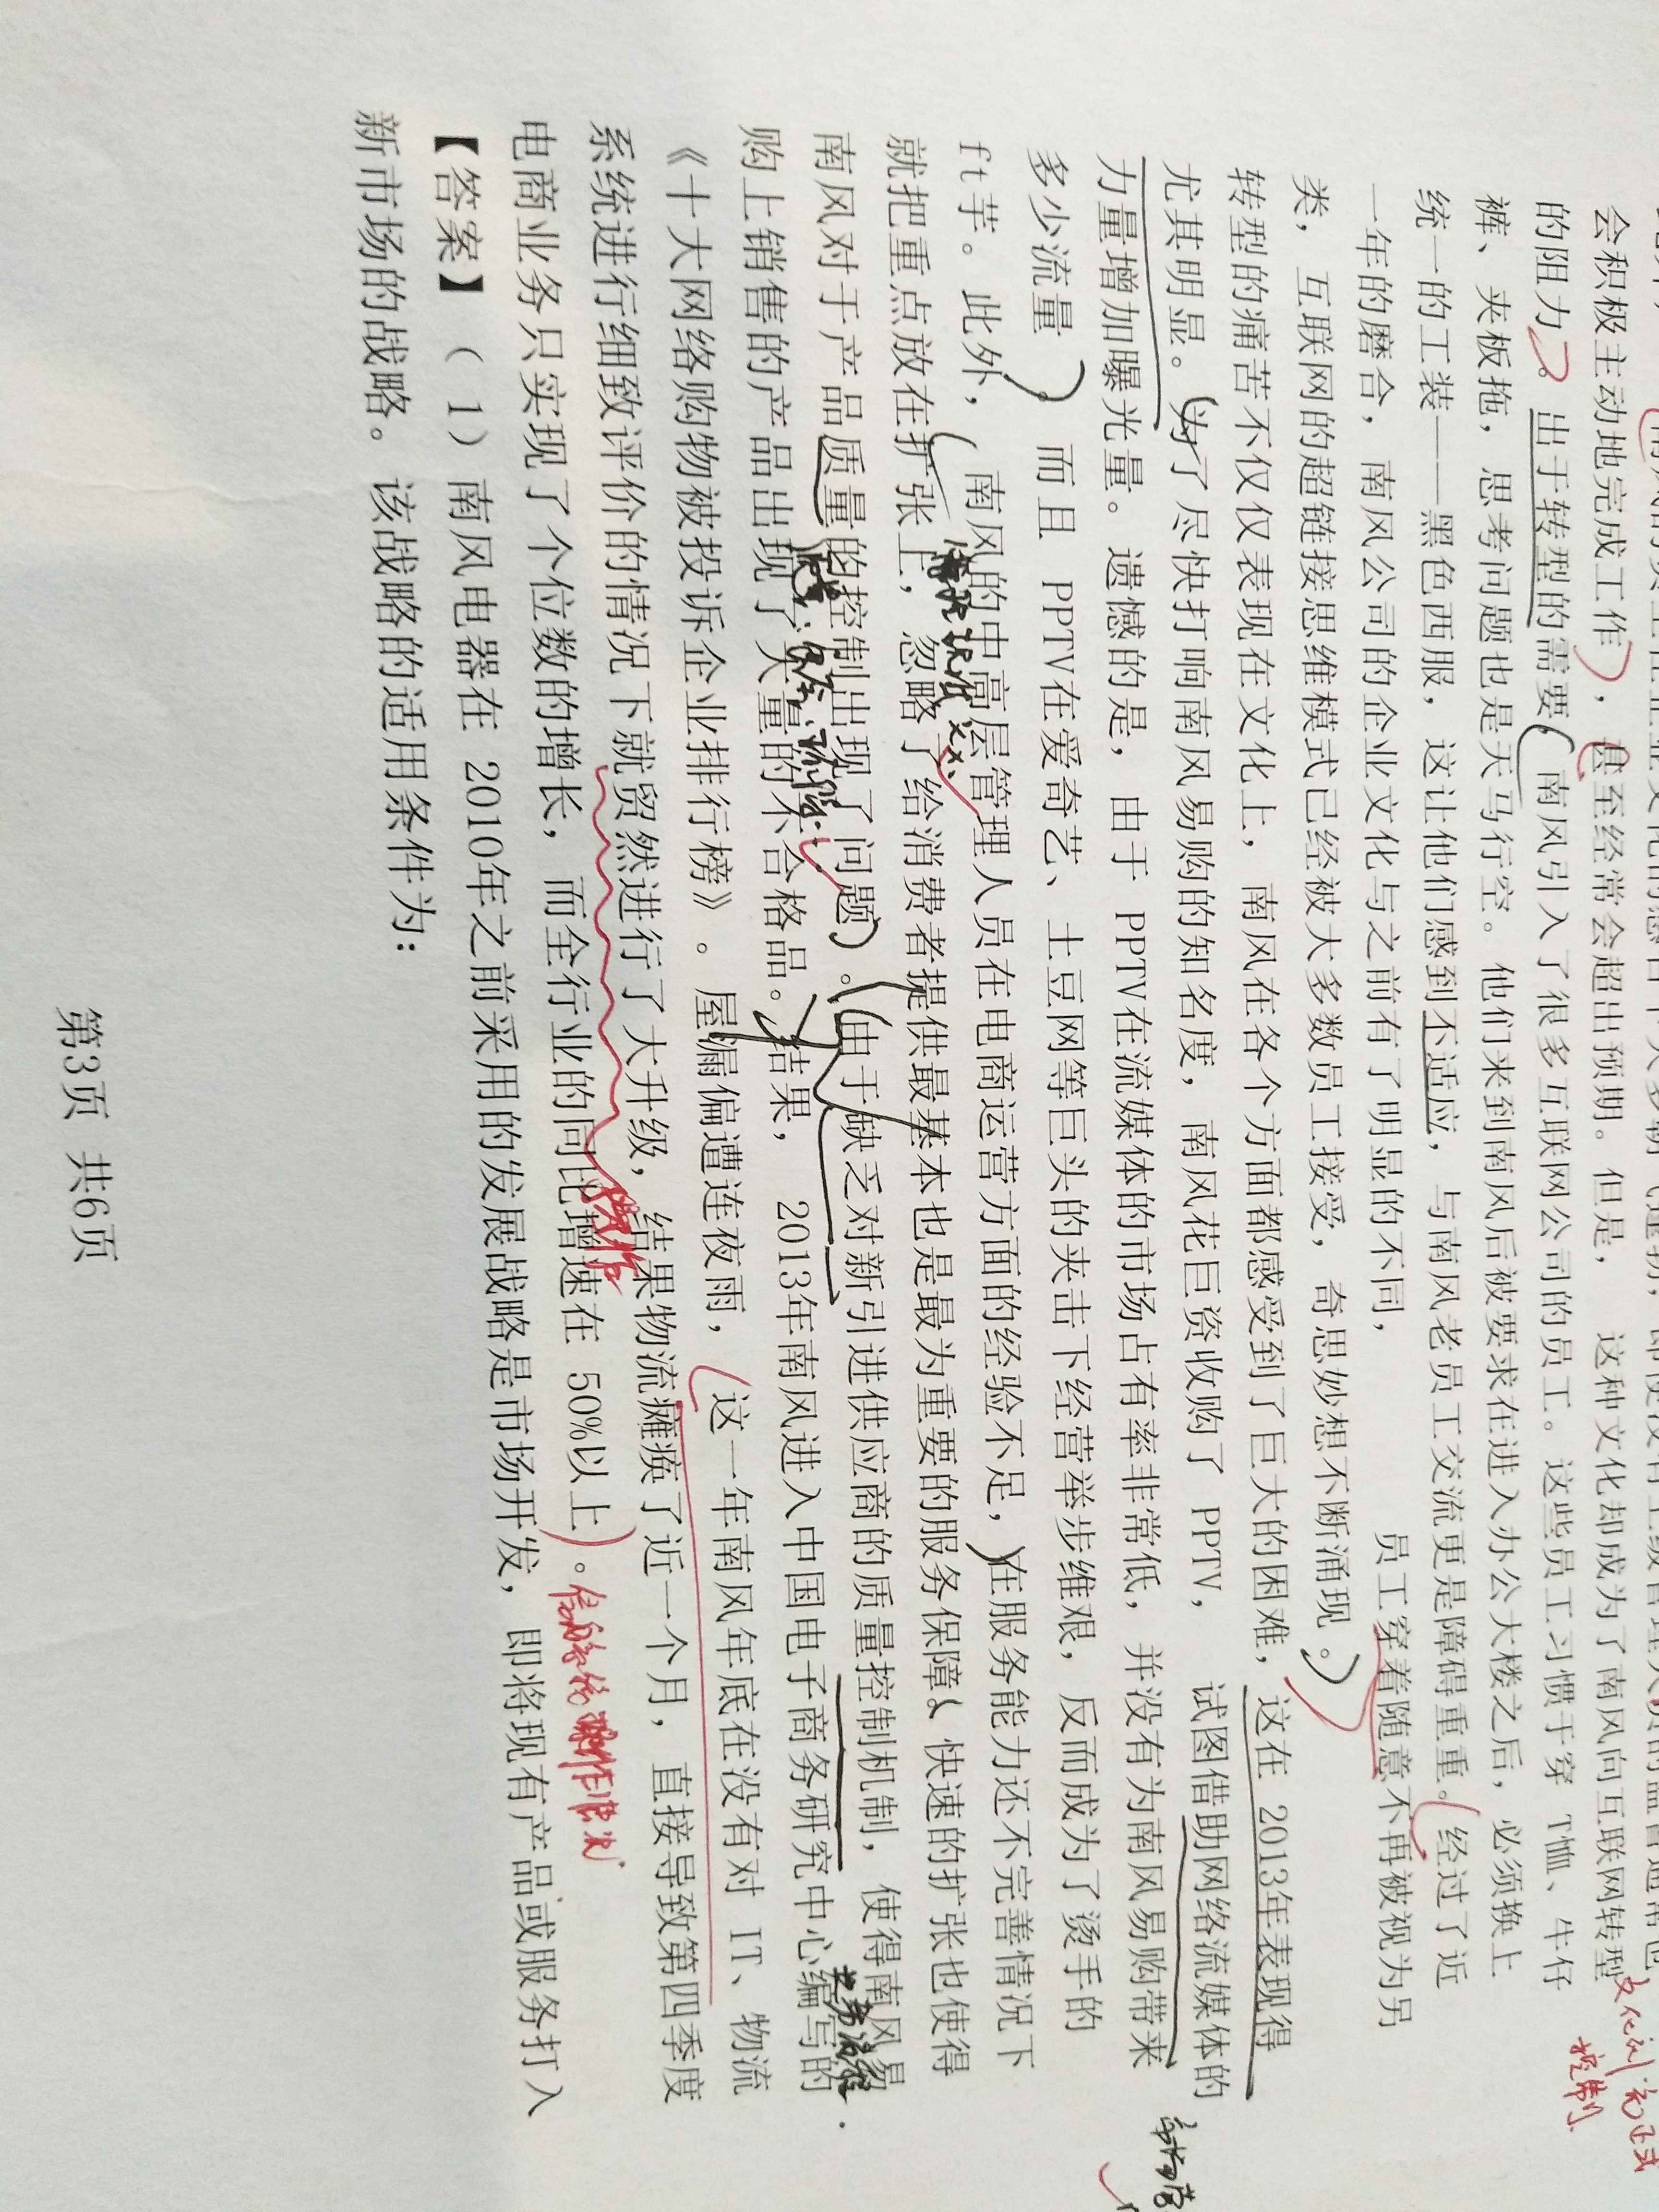 会积极主动地完成工作），甚至经常会超出预期。但是，这种文化却成为了南风向互联网转型
文化例 非正式
控制
的阻力。出于转型的需要，南风引入了很多互联网公司的员工。这些员工习惯于穿 T恤、牛仔
裤、夹板拖，思考问题也是天马行空。他们来到南风后被要求在进入办公大楼之后，必须换上
统一的工装——黑色西服，这让他们感到不适应，与南风老员工交流更是障碍重重。（经过了近
一年的磨合，南风公司的企业文化与之前有了明显的不同，员工穿着随意不再被视为另
类，互联网的超链接思维模式已经被大多数员工接受，奇思妙想不断涌现。）
转型的痛苦不仅仅表现在文化上，南风在各个方面都感受到了巨大的困难，这在 2013年表现得
尤其明显。（为了尽快打响南风易购的知名度，南风花巨资收购了 PPTV，试图借助网络流媒体的
力量增加曝光量。遗憾的是，由于 PPTV在流媒体的市场占有率非常低，并没有为南风易购带来
多少流量），而且 PPTV在爱奇艺、土豆网等巨头的夹击下经营举步维艰，反而成为了烫手的
ft芋。此外，（南风的中高层管理人员在电商运营方面的经验不足，）在服务能力还不完善情况下
就把重点放在扩张上，忽略了给消费者提供最基本也是最为重要的服务保障。快速的扩张也使得
南风对于产品质量的控制出现了问题）。（由于缺乏对新引进供应商的质量控制机制，使得南风易
购上销售的产品出现了大量的不合格品。结果，2013年南风进入中国电子商务研究中心编写的
《十大网络购物被投诉企业排行榜》。屋漏偏遭连夜雨，（这一年南风年底在没有对 IT、物流
系统进行细致评价的情况下就贸然进行了大升级，结果物流瘫痪了近一个月，直接导致第四季度
电商业务只实现了个位数的增长，而全行业的同比增速在 50%以上）。
【答案】（1）南风电器在 2010年之前采用的发展战略是市场开发，即将现有产品或服务打入
新市场的战略。该战略的适用条件为：
第3页 共6页